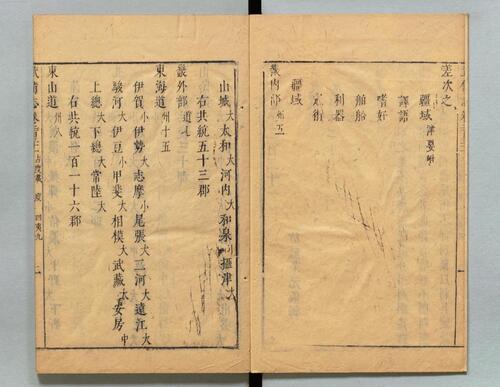 差次之
疆域 津要附
譯語
嗜好
舶船
利器
定術
疆域
畿内部 州五
山城大太和大河内大和泉小攝津大
右共統五十三郡
畿外部 道七
東海道 州十五
伊賀小伊勢大志摩小尾張大三河大遠江大
駿河大伊豆小甲斐大相模大武藏大安房中
上總大下總大常陸大
右共統一百一十六郡
東山道 州八